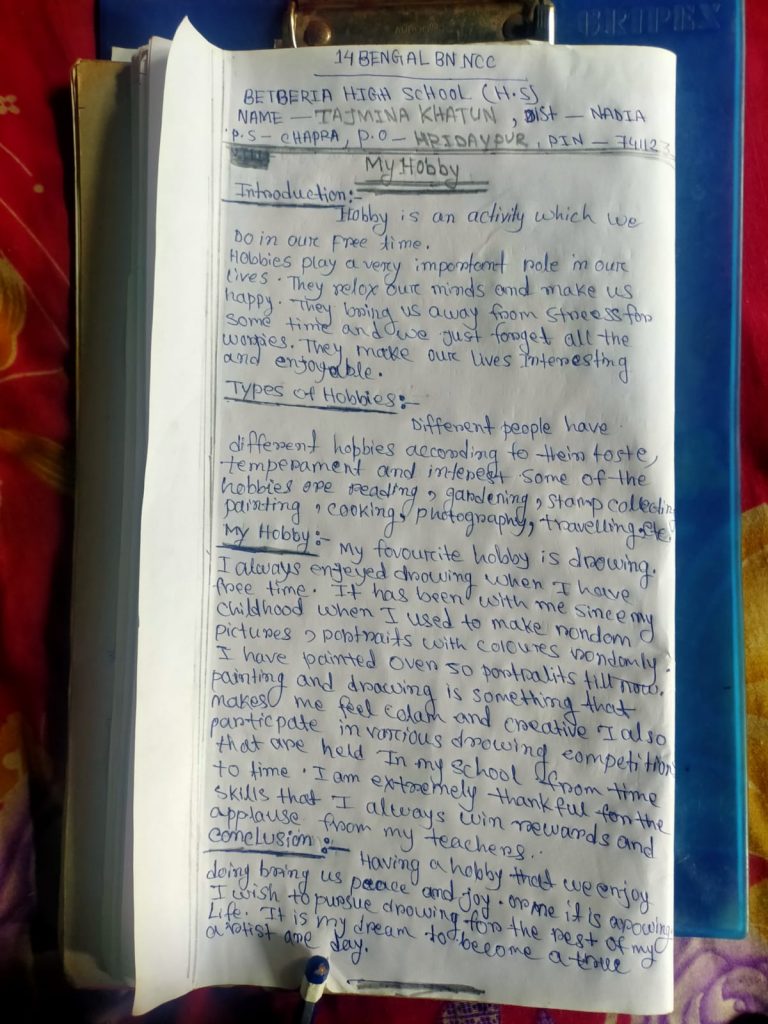 CRIPEX
14 BENGAL BN NCC
BETBERIA HIGH SCHOOL (H.S)
NAME — TAJMINA KHATUN, DIST — NADIA
P.S — CHAPRA, P.O — HRIDAYPUR, PIN — 741123
My Hobby
Introduction:-
Hobby is an activity which we
Do in our free time.
Hobbies play a very important role in our
lives. They relox our minds and make us
happy. They bring us away from stress for
some time and we just forget all the
worries. They make our lives Interesting
and enjoyable.
Types of Hobbies:-
Different people have
different hobbies according to their taste,
temperament and interest some of the
hobbies are reading, gardening, stamp collectin
painting, cooking, photography, travelling. etc.
My Hobby:- My favourite hobby is drowing.
I always enjeyed drowing when I have
free time. It has been with me since my
childhood when I used to make random
pictures, portraits with coloures randomly.
I have painted over 50 portralits till now.
painting and drawing is something that
makes me feel calam and creative I also
particpate in various drowing competition
that are held In my school from time
to time. I am extremely thankful for the
skills that I always win rewards and
applause from my teachers.
Conclusion:-
Having a hobby that we enjoy
doing bring us peace and joy. or me it is drowing.
I wish to pursue drowing for the rest of my
Life. It is my dream to become a true
artist one day.